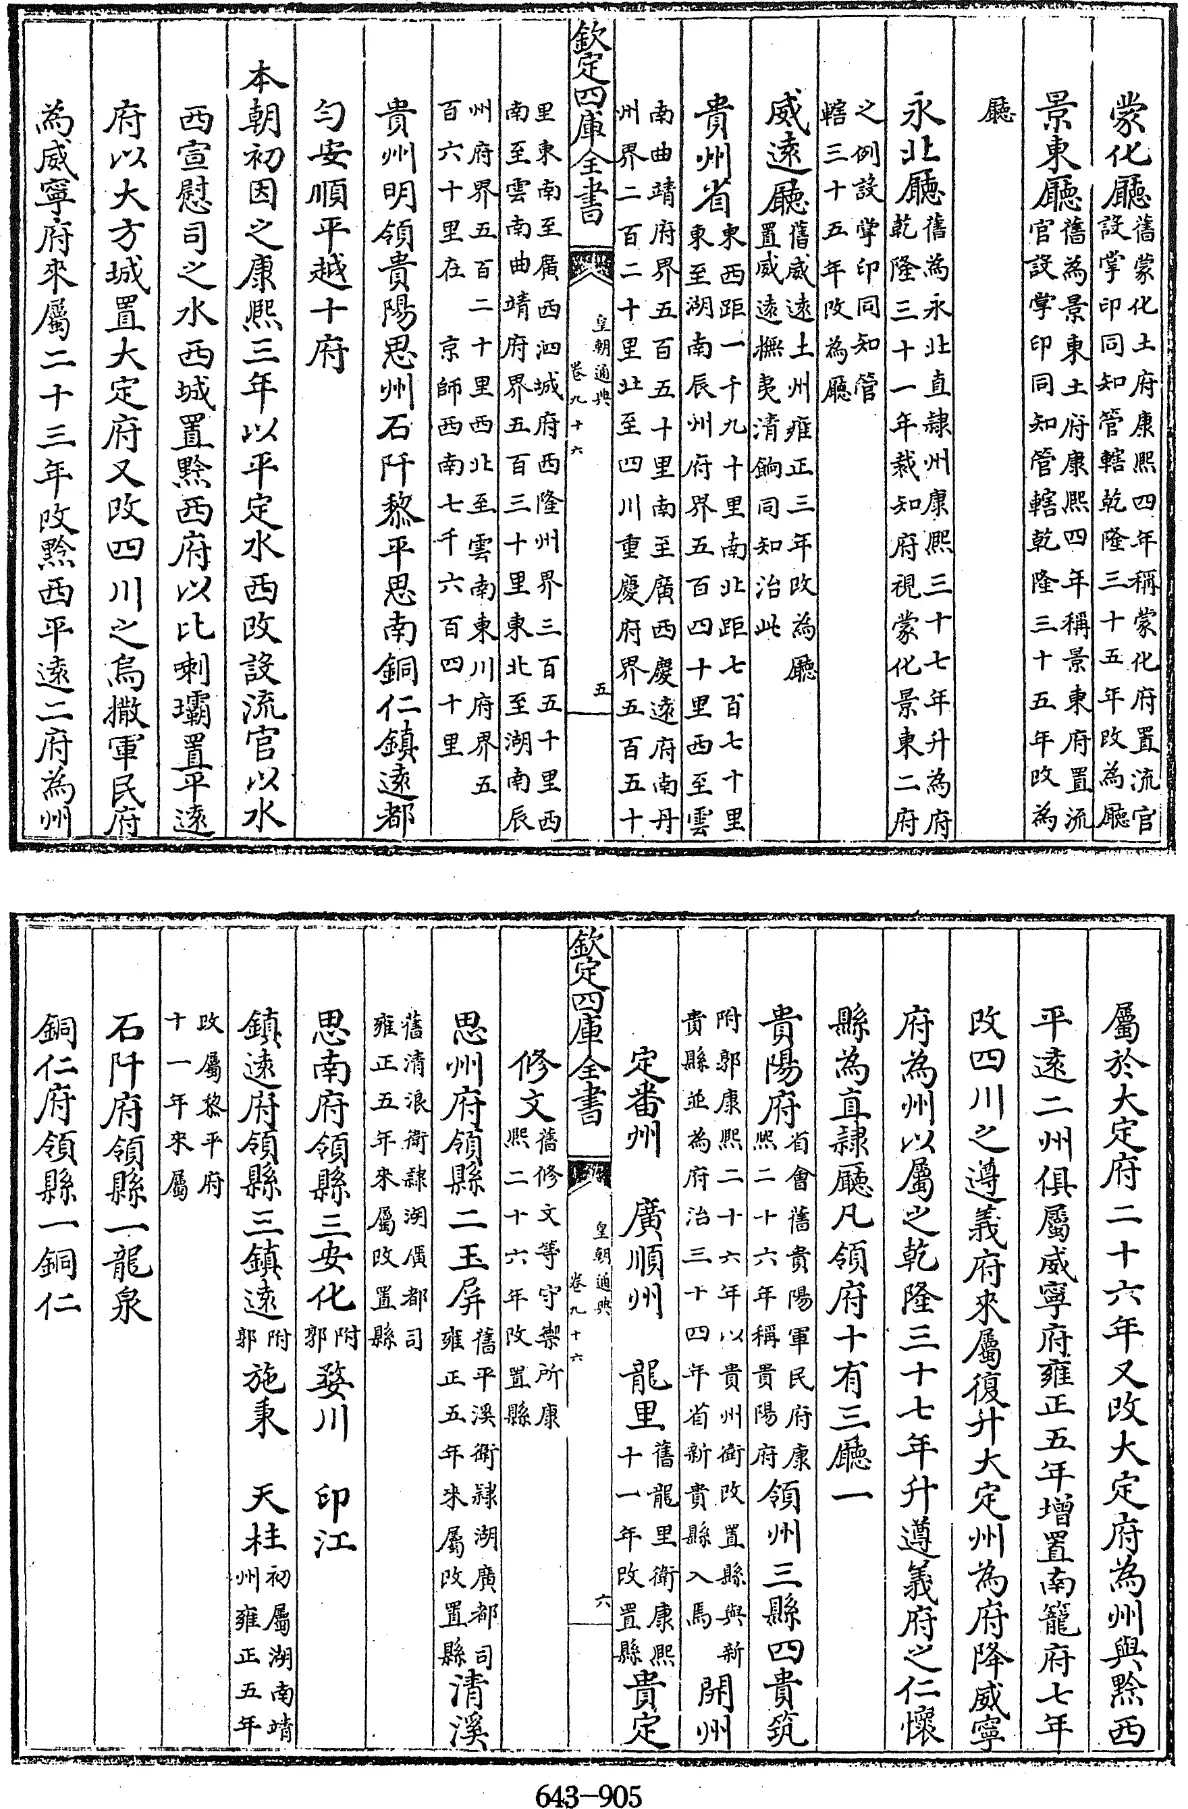 蒙化廳舊蒙化土府康熙四年稱蒙化府置流官設掌印同知管轄乾隆三十五年改為廳
景東廳舊為景東土府康熙四年稱景東府置流官設掌印同知管轄乾隆三十五年改為
廳
永北廳舊為永北直隸州康熙三十七年升為府乾隆三十一年裁知府視蒙化景東二府
之例設掌印同知管轄三十五年改為廳
威遠廳舊威遠土州雍正三年改為廳置威遠撫夷清餉同知治此
貴州省東西距一千九十里南北距七百七十里東至湖南辰州府界五百四十里西至雲
南曲靖府界五百五十里南至廣西慶遠府南丹州界二百二十里北至四川重慶府界五百五十
欽定四庫全書 皇朝通典 卷九十六 五
里東南至廣西泗城府西隆州界三百五十里西南至雲南曲靖府界五百三十里東北至湖南辰
州府界五百二十里西北至雲南東川府界五百六十里在 京師西南七千六百四十里
貴州明領貴陽思州石阡黎平思南銅仁鎮遠都
勻安順平越十府
本朝初因之康熙三年以平定水西改設流官以水
西宣慰司之水西城置黔西府以比喇壩置平遠
府以大方城置大定府又改四川之烏撒軍民府
為威寧府來屬二十三年改黔西平遠二府為州
屬於大定府二十六年又改大定府為州與黔西
平遠二州俱屬威寧府雍正五年增置南籠府七年
改四川之遵義府來屬復升大定州為府降威寧
府為州以屬之乾隆三十七年升遵義府之仁懷
縣為直隸廳凡領府十有三廳一
貴陽府省會舊貴陽軍民府康熙二十六年稱貴陽府領州三縣四貴筑
附郭康熙二十六年以貴州衛改置縣與新貴縣並為府治三十四年省新貴縣入焉 開州
定番州 廣順州 龍里舊龍里衛康熙十一年改置縣貴定
欽定四庫全書 皇朝通典 卷九十六 六
修文舊修文等守禦所康熙二十六年改置縣
思州府領縣二玉屏舊平溪衛隸湖廣都司雍正五年來屬改置縣清溪
舊清浪衛隸湖廣都司雍正五年來屬改置縣
思南府領縣三安化附郭婺川 印江
鎮遠府領縣三鎮遠附郭施秉 天柱初屬湖南靖州雍正五年
改屬黎平府十一年來屬
石阡府領縣一龍泉
銅仁府領縣一銅仁
643-905